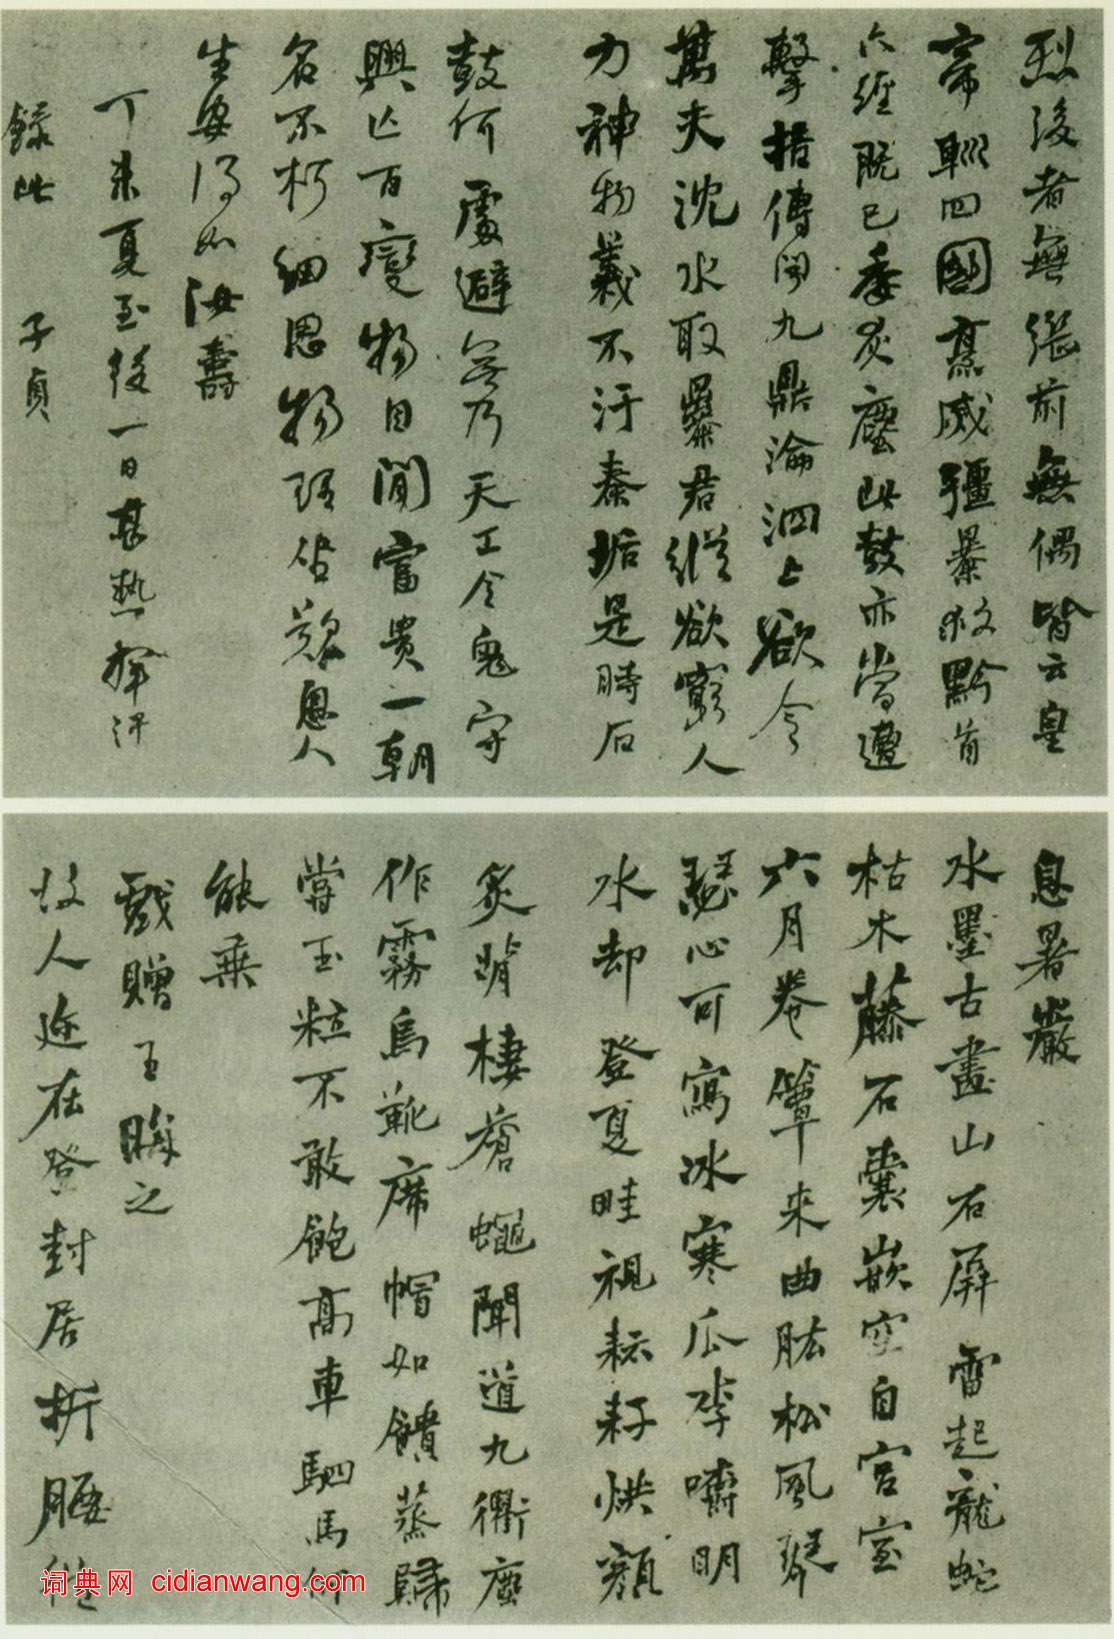 烈後者無繼前無偶皆云皇
帝巡四國烹滅彊暴救黔首
六經既已委灰塵此鼓亦當遭
擊掊傳聞九鼎淪泗上欲令
萬夫沈水取暴君縱欲窮人
力神物義不汙秦垢是時石
鼓何處避無乃天工令鬼守
興亡百變物自閒富貴一朝
名不朽細思物理坐歎息人
生安得如汝壽
丁未夏至後一日甚熱揮汗
錄此 子貞
息暑巖
水墨古畫山石屏雷起龍蛇
枯木藤石囊嵌空自宮室
六月卷簟来曲肱松風琴
瑟心可寫冰寒瓜李嚼明
水却登夏畦視耘耔烘顏
炙背棲蒼蠅聞道九衢塵
作霧烏靴席帽如饙蒸歸
嘗玉粒不敢飽高車駟馬何
能乘
戲贈王晦之
故人迩在登封居折腰從
词典网 cidianwang.com